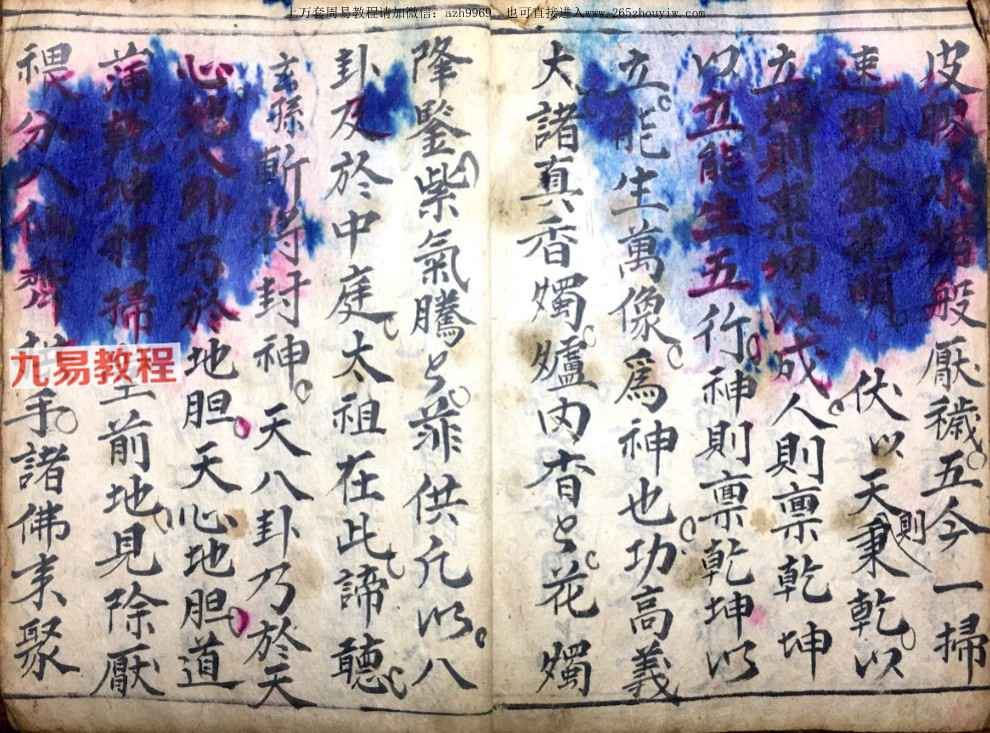 上万套周易教程请加微信：azh9969，也可直接进入www.265zhouyiw.com
皮 水 般厭穢五今一掃
速現金 明伏以天則秉乾以
立地則禀坤以成人則禀乾坤
以立能生五行神則禀乾坤以
立能生萬像為神也功高義
大諸真香燭爐內香〻花燭
降鑒紫氣騰〻菲供凢以八
卦及於中庭太祖在此諦聽
玄孫斬将封神天八卦乃於天
心地八卦乃於地胆天心地胆道
乾坤 掃 前地見除厭
分人 手諸佛来聚
九易教程